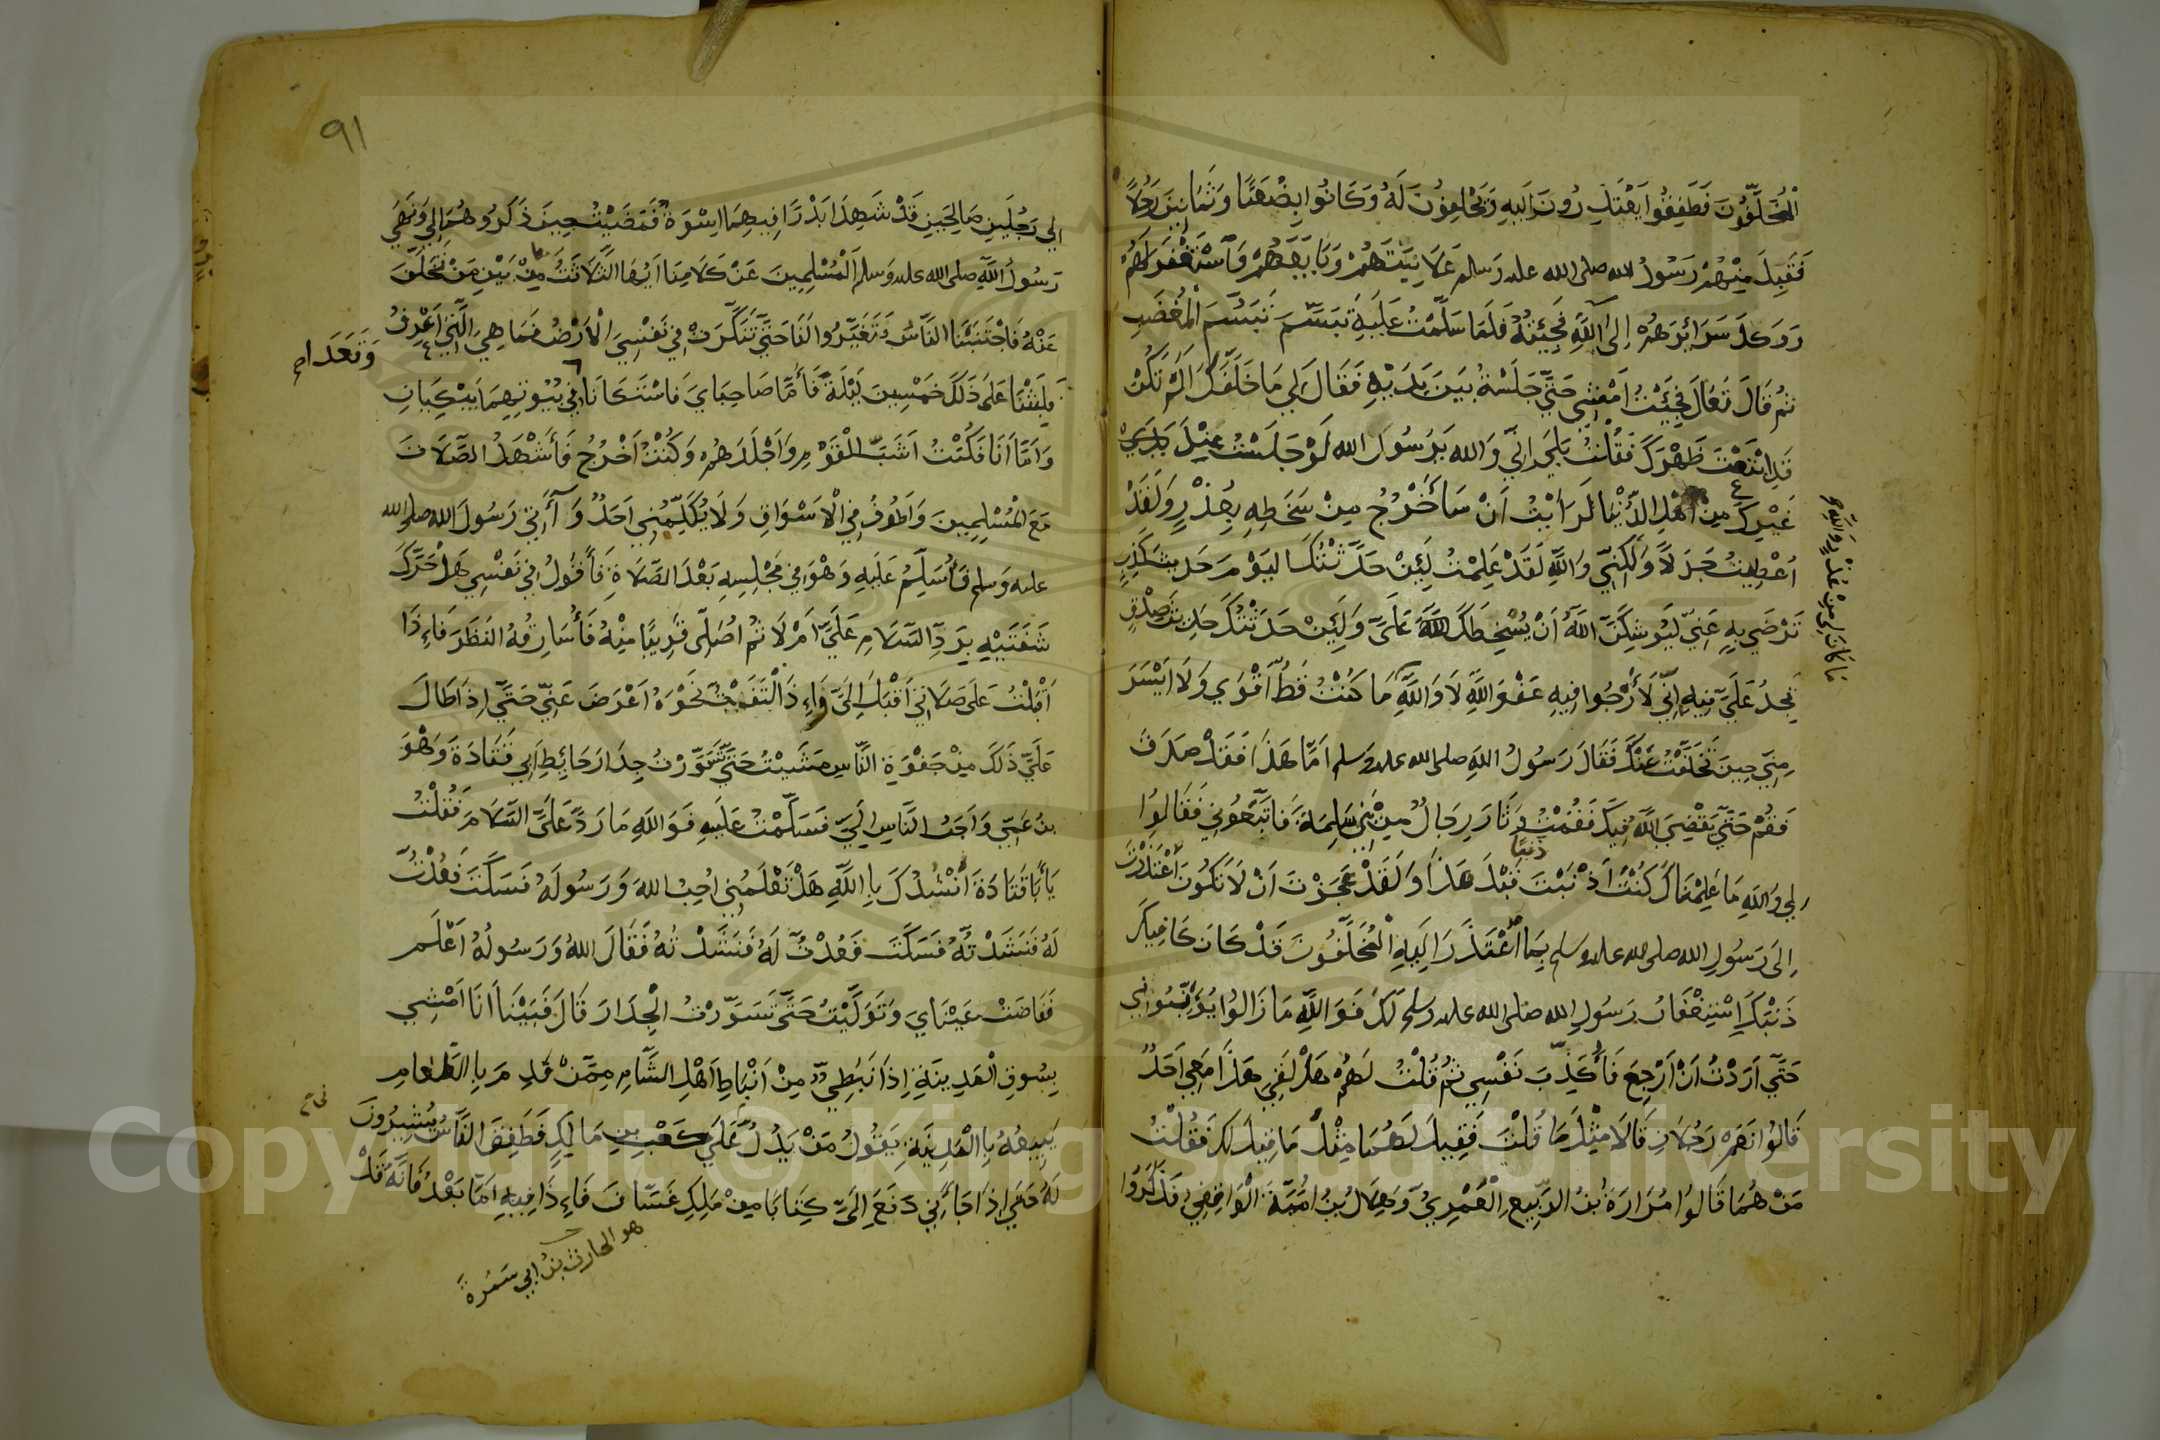 الْمُخَلَّفُونَ فَطَفِقُوا يَعْتَذِرُونَ اِلَيهِ وَيَحْلِفُونَ لَهُ وَكَانُوا بِضْعَةً وَثَمَانِينَ رَجُلاً
فَقَبِلَ مِنْهُمْ رَسُولُ الله صلى الله عليه وسلم عَلَانِيَتَهُمْ وَبَايَعَهُمْ وَاسْتَغْفَرَ لَهُمْ
وَوَكَلَ سَرَائِرَهُمْ اِلَى اللَّهِ فَجِئْتُهُ فَلَمَّا سَلَّمْتُ عَلَيهِ تَبَسَّمَ تَبَسُّمَ الْمُغْضَبِ
ثُمَّ قَالَ تَعَالَ فَجِئْتُ اَمْشِي حَتَّى جَلَسْتُ بَينَ يَدَيْهِ فَقَالَ لِي مَا خَلَّفَكَ اَلَمْ تَكُنْ
قَدِ ابْتَعْتَ ظَهْرَكَ فَقُلْتُ بَلَى اِنِّي وَالله يَرَسُولَ الله لَوْ جَلَسْتُ عِنْدَ
غَيْرِكَ مِنْ اَهْلِ الدُّنْيَا لَرَأَيْتُ اَنْ سَأَخْرُجُ مِنْ سَخَطِهِ بِعُذْرٍ وَلَقَدْ
اُعْطِيتُ جَدَلاً وَلَكِنِّي وَاللَّهِ لَقَدْ عَلِمْتُ لَئِنْ حَدَّثْتُكَ اليَوْمَ حَدِيثَ كَذِبٍ
تَرْضَي بِهِ عَنِّي لَيُوشِكَنَّ اللَّهُ اَنْ يُسْخِطَكَ عَلَيَّ وَلَئِنْ حَدَّثْتُكَ حَدِيثَ صِدْقٍ
تَجِدُ عَلَيَّ فِيهِ اِنِّي لَأَرْجُوا فِيهِ عَفْوَ اللَّهِ لَا وَاللَّهِ مَا كُنْتُ قَطُّ اَقْوَي وَلَا اَيْسَرَ
مِنِّي حِينَ تَخَلَّفْتُ عَنْكَ فَقَالَ رَسُولُ اللهِ صلى الله عليه وسلم اَمَّا هَذَا فَقَدْ صَدَقَ
فَقُمْ حَتَّى يَقْضِيَ اللَّهُ فِيكَ فَقُمْتُ وَثَارَ رِجَالٌ مِنْ بَنِي سَلِمَةَ فَاتَّبَعُونِي فَقَالُوا
لِي وَاللهِ مَا عَلِمْنَاكَ كُنْتَ اَذْنَبْتَ ذَنْبًا قَبْلَ هَذَا وَلَقَدْ عَجَزْتَ اَنْ لَا تَكُونَ اعْتَذَرْتَ
اِلَى رَسُولِ الله صلى الله عليه وسلم بِمَا اعْتَذَرَ اِلَيهِ الْمُخَلَّفُونَ قَدْ كَانَ كَافِيكَ
ذَنْبَكَ اِسْتِغْفَارُ رَسُولِ الله صلى الله عليه وسلم لَكَ فَوَاللَّهِ مَا زَالُوا يُؤَنِّبُونِي
حَتَّى اَرَدْتُ اَنْ اَرْجِعَ فَأُكَذِّبَ نَفْسِي ثُمَّ قُلْتُ لَهُمْ هَلْ لَقِيَ هَذَا مَعِي اَحَدٌ
قَالُوا نَعَمْ رَجُلَانِ قَالَا مِثْلَ مَا قُلْتَ فَقِيلَ لَهُمَا مِثْلُ مَا قِيلَ لَكَ فَقُلْتُ
مَنْ هُمَا قَالُوا مُرَارَةُ بْنُ الرَّبِيعِ الْعَمْرِيُّ وَهِلَالُ بْنُ اُمَيَّةَ الْوَاقِفِيُّ فَذَكَرُوا
مَا كَانَ لِي مِنْ عُذْرٍ وَاللَّهِ
٩١
لِي رَجُلَينِ صَالِحَينِ قَدْ شَهِدَا بَدْرًا فِيهِمَا اسْوَةٌ فَمَضَيْتُ حِينَ ذَكَرُوهُمَا لِي وَنَهَى
رَسُولُ اللَّهِ صلى الله عليه وسلم الْمُسْلِمِينَ عَنْ كَلَامِنَا اَيُّهَا الثَّلَاثَةُ مِنْ بَيْنِ مَنْ تَخَلَّفَ
عَنْهُ فَاجْتَنَبَنَا النَّاسُ وَتَغَيَّرُوا لَنَا حَتَّى تَنَكَّرَتْ فِي نَفْسِيَ الْاَرْضُ فَمَا هِيَ الَّتِي اَعْرِفُ
فَلَبِثْنَا عَلَى ذَلَكَ خَمْسِينَ لَيْلَةً فَأَمَّا صَاحِبَايَ فَاسْتَكَانَا فِي بُيُوتِهِمَا يَبْكِيَانِ
وَقَعَدَا
وَاَمَّا اَنَا فَكُنْتُ اَشَبَّ الْقَوْمِ وَاَجْلَدَهُمْ وَكُنْتُ اَخْرُجُ فَأَشْهَدُ الصَّلَاةَ
مَعَ الْمُسْلِمِينَ وَاَطُوفُ فِي الْاَسْوَاقِ وَلَا يُكَلِّمُنِي اَحَدٌ وَآتِي رَسُولَ الله صلى الله
عليه وسلم فَأُسَلِّمُ عَلَيهِ وَهْوَ فِي مَجْلِسِهِ بَعْدَ الصَّلَاةِ فَأَقُولُ فِي نَفْسِي هَلْ حَرَّكَ
شَفَتَيْهِ بِرَدِّ السَّلَامِ عَلَيَّ اَمْ لَا ثُمَّ اُصَلِّى قَرِيبًا مِنْهُ فَأُسَارِقُهُ النَّظَرَ فَاِذَا
اَقْبَلْتُ عَلَى صَلَاتِي اَقْبَلَ اِلَيَّ وَاِذَا الْتَفَتُّ نَحْوَهُ اَعْرَضَ عَنِّي حَتَّى اِذَا طَالَ
عَلَيَّ ذَلَكَ مِنْ جَفْوَةِ النَّاسِ مَشَيْتُ حَتَّى تَسَوَّرْتُ جِدَارَ حَائِطِ اَبِي قَتَادَةَ وَهْوَ
بنُ عَمِّي وَاَحَبُّ النَّاسِ اِلَيَّ فَسَلَّمْتُ عَلَيهِ فَوَاللهِ مَا رَدَّ عَلَيَّ السَّلَامَ فَقُلْتُ
يَأَبَا قَتَادَةَ اَنْشُدُكَ بِاللَّهِ هَلْ تَعْلَمُنِي اُحِبُّ اللهَ وَرَسُولَهُ فَسَكَتَ فَعُدْتُ
لَهُ فَنَشَدْتُهُ فَسَكَتَ فَعُدْتُ لَهُ فَنَشَدْتُهُ فَقَالَ اللهُ وَرَسُولُهُ اَعْلَم
فَفَاضَتْ عَيْنَايَ وَتَوَلَّيْتُ حَتَّى تَسَوَّرْتُ الْجِدَارَ قَالَ فَبَيْنَا اَنَا اَمْشِي
بِسُوقِ الْمَدِينَةِ اِذَا نَبَطِيٌّ مِنْ اَنْبَاطِ اَهْلِ الشَّامِ مِمَّنْ قَدِمَ بِالطَّعَامِ
يَبِيعُهُ بِالْمَدِينَةِ يَقُولُ مَنْ يَدُلُّ عَلَى كَعْبِ بنِ مَالِكٍ فَطَفِقَ النَّاسُ يُشِيرُونَ
لَهُ حَتَّى اِذَا جَاءَنِي دَفَعَ اِلَيَّ كِتَابًا مِنْ مَلِكِ غَسَّانَ فَاِذَا فِيهِ اَمَّا بَعْدُ فَاِنَّهُ قَدْ
هو الحارث بن ابي سمرة
Copyright © King Saud University